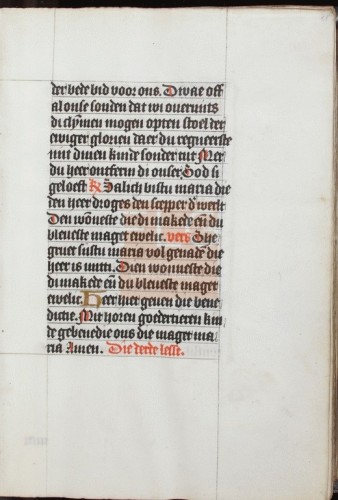 der bede bid voor ons. Dwae off
al onse sonden dat wi overunts
di clymen mogen opten stoel der
ewiger glorien daer du regneerste
mit dinen kinde sonder eut Mer
du heer ontferm di onser God si
geloeft R Salich bistu maria die
den heer droges den scepper d' werlt
Den wonneste die di makede en du
bleueste maget ewelic. vers Ghe
gruet sijstu maria vol genaden die
heer is mitti. Dien wonneste die
di makede en du bleueste maget
ewelic. Heer hier geuen die bene
dictie. Mit horen goedertieren kin
de gebenedie ons die maget ma
ria Amen. Die derde lesse.